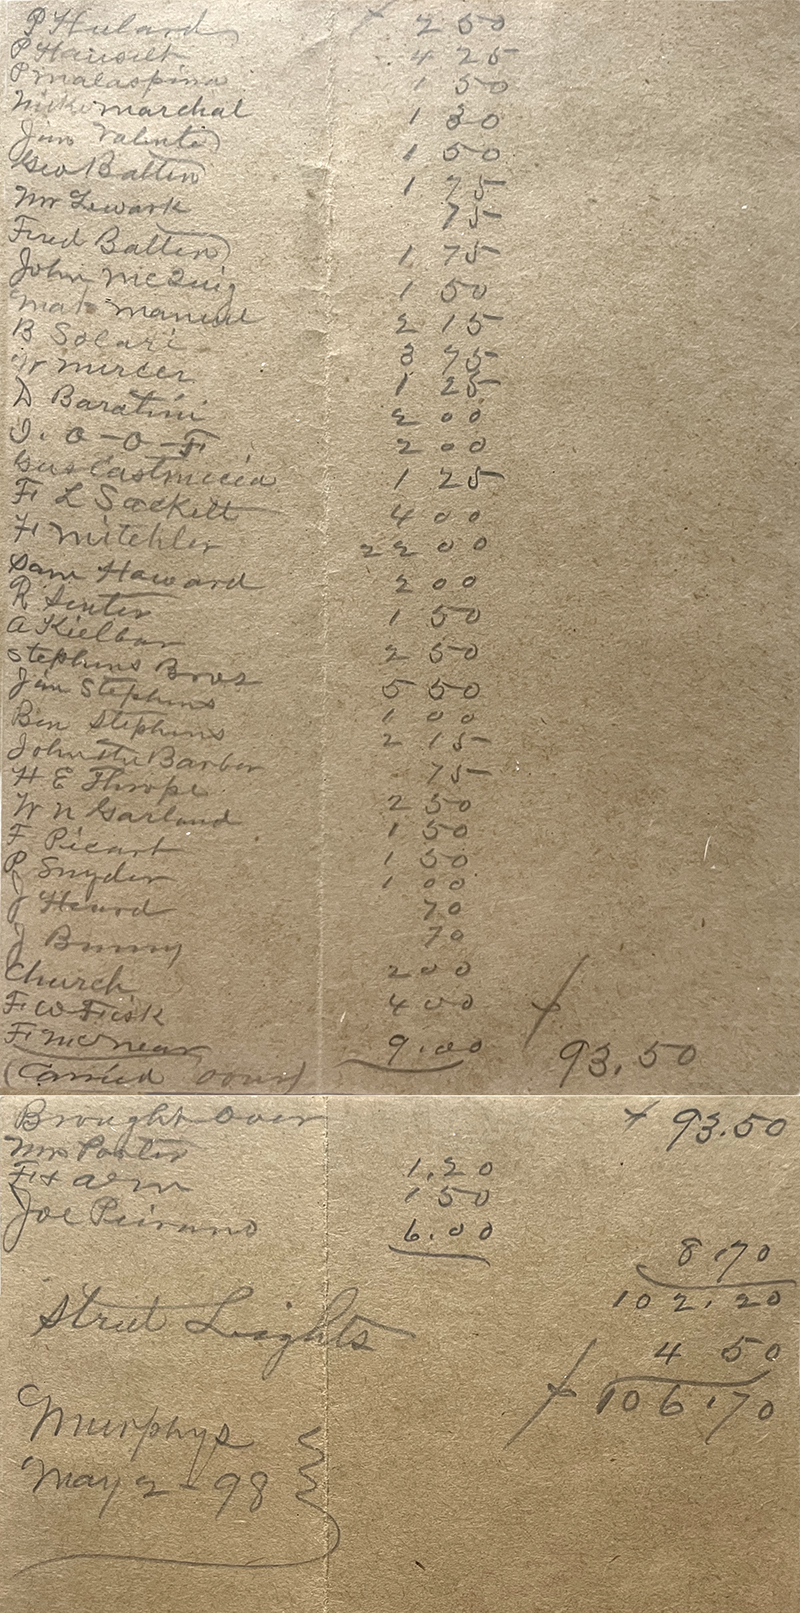 P Hulard + 2 50
P Hauselt 4 25
P Malaspina 1 50
Mike Marchal 1 30
Jim Valente 1 50
Geo Batten 1 75
Mr Lewark 75
Fred Batten 1 75
John McQuig 1 50
Mat Manuel 2 15
B Solari 3 75
W Mercer 1 25
D Baratini 2 00
I. O-O-F 2 00
Gus 1 25
F L Sackett 4 00
F Mitchler 22 00
Sam Haward 2 00
R Senter 1 50
A Kielbar 2 50
Stephens Bros 5 50
Jim Stephens 1 00
Ben Stephens 2 15
John the Barber 75
H E Thrope 2 50
W N Garland 1 50
F Picart 1 50
P Snyder 1 00
J Heard 70
J Bunny 70
Church 2 00
F W Fisk 4 00
F McNear 9.00
(Carried over) + 93.50
Brought Over + 93.50
Mrs Porter 1.20
1 50
Joe Peirano 6.00
8.70
102.20
Street Lights 4 50
+ 106.70
Murphys
May 2-98